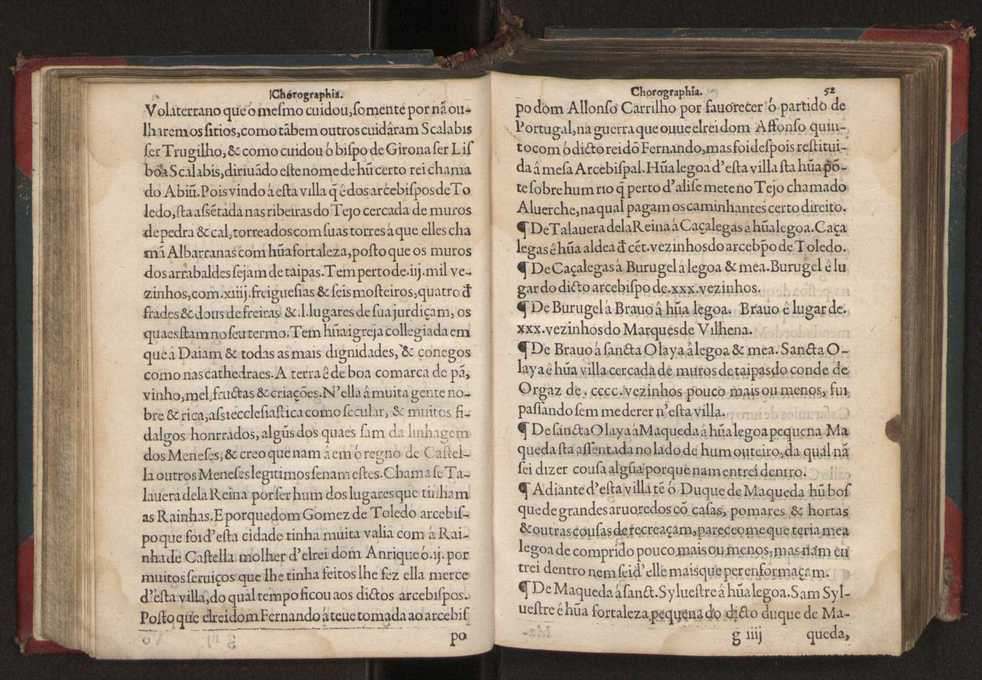 Chorographia.
Volaterrano que ó mesmo cuidou, somente por nã ou-
lharem os sitios, como tãbem outros cuidâram Scalabis
ser Trugilho, & como cuidou ó bispo de Girona ser Lis
boa Scalabis, diriuãdo este nome de hũ certo rei chama
do Abiũ. Pois vindo á esta villa q̃ ê dos arcebispos de To
ledo, sta assẽtada nas ribeiras do Tejo cercada de muros
de pedra & cal, torreados com suas torres á que elles cha
mã Albarranas com hũa fortaleza, posto que os muros
dos arrabaldes sejam de taipas. Tem perto de .iij. mil ve-
zinhos, com .xiiij. freiguesias & seis mosteiros, quatro đ
frades & dous de freiras & .l. lugares de sua jurdiçam, os
quaes stam no seu termo. Tem hũa igreja collegiada em
que á Daiam & todas as mais dignidades, & conegos
como nas cathedraes. A terra ê de boa comarca de pã,
vinho, mel, fructas & criações. N'ella á muita gente no-
bre & rica, assi ecclesiastica como secular, & muitos fi-
dalgos honrrados, algũs dos quaes sam da linhagem
dos Meneses, & creo que nam á em ó regno de Castel-
la outros Meneses legitimos senam estes. Chama se Ta-
lauera dela Reina por ser hum dos lugares que tinham
as Rainhas. E porque dom Gomez de Toledo arcebis-
po que foi d'esta cidade tinha muita valia com á Rai-
nha de Castella molher d'elrei dom Anrique ó .ij. por
muitos seruiços que lhe tinha feitos lhe fez ella merce
d'esta villa, do qual tempo ficou aos dictos arcebispos.
Posto que elrei dom Fernando á teue tomada ao arcebis
po
Chorographia. 52
po dom Allonso Carrilho por fauorecer ó partido de
Portugal, na guerra que ouue elrei dom Affonso quin-
to com ó dicto rei dõ Fernando, mas foi despois restitui-
da á mesa Arcebispal. Hũa legoa d'esta villa sta hũa põ-
te sobre hum rio q̃ perto d'ali se mete no Tejo chamado
Aluerche, na qual pagam os caminhantes certo direito.
¶ De Talauera dela Reina á Caçalegas á hũa legoa. Caça
legas ê hũa aldea đ cẽt. vezinhos do arcebp̃o de Toledo.
¶ De Caçalegas à Burugel á legoa & mea. Burugel ê lu
gar do dicto arcebispo de .xxx. vezinhos.
¶ De Burugel à Brauo â hũa legoa. Brauo ê lugar de.
xxx. vezinhos do Marques de Vilhena.
¶ De Brauo á sancta Olaya â legoa & mea. Sancta O-
laya ê hũa villa cercada de muros de taipas do conde de
Orgaz de . cccc. vezinhos pouco mais ou menos, fui
passando sem me deter n'esta villa.
¶ De sancta Olaya â Maqueda á hũa legoa pequena Ma
queda sta assentada no lado de hum outeiro, da qual nã
sei dizer cousa algũa porque nam entrei dentro.
¶ Adiante d'esta villa tẽ ó Duque de Maqueda hũ bos
que de grandes aruoredos cõ casas, pomares & hortas
& outras cousas de recreaçam, pareceo me que teria mea
legoa de comprido pouco mais ou menos, mas nam en
trei dentro nem sei d'elle mais que per enformaçam.
¶ De Maqueda á sanct. Syluestre á hũa legoa. Sam Syl-
uestre ê hũa fortaleza pequena do dicto duque de Ma-
g iiij queda,